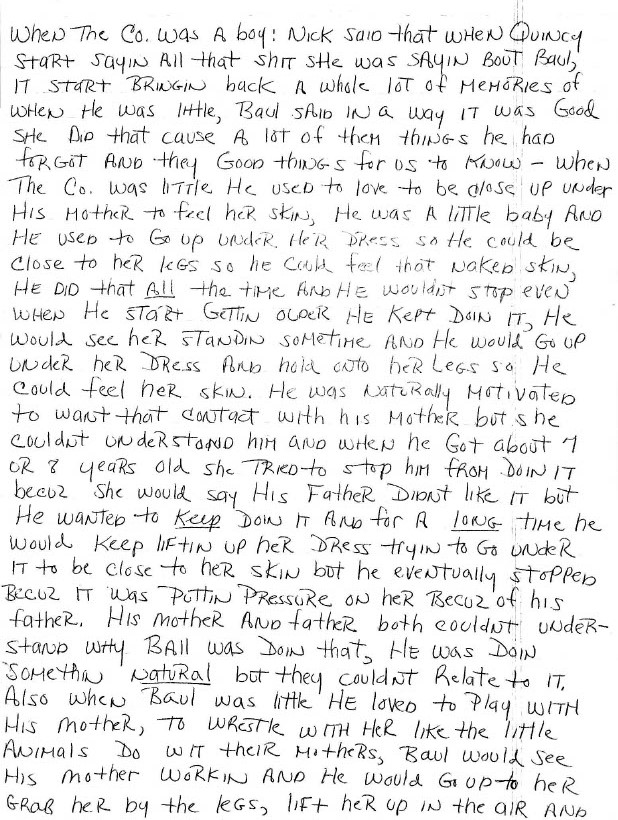 When The Co. was a boy: Nick said that when Quincy
start sayin all that shit she was sayin bout Baul,
it start bringin back a whole lot of memories of
when he was little, Baul said in a way it was good
she did that cause a lot of them things he had
forgot and they good things for us to know - when
The Co. was little He used to love to be close up under
His mother to feel her skin, He was a little baby and
He used to go up under Her dress so He could be
close to her legs so he could feel that naked skin,
He did that all the time and He wouldnt stop even
when He start gettin older He kept doin it, He
would see her standin sometime and He would go up
under her dress and hold onto her legs so He
could feel her skin. He was naturally motivated
to want that contact with his mother but she
couldnt understand him and when he got about 7
or 8 years old she tried to stop him from doin it
becuz she would say His Father didnt like it but
He wanted to keep doin it and for a long time he
would keep liftin up her dress tryin to go under
it to be close to her skin but he eventually stopped
becuz it was puttin pressure on her becuz of his
father. His mother and father both couldnt under-
stand why Ball was doin that, He was doin
somethin natural but they couldnt relate to it.
Also when Baul was little He loved to play with
His mother, to wrestle with her like the little
animals do wit their mothers, Baul would see
His mother workin and He would go up to her
grab her by the legs, lift her up in the air and